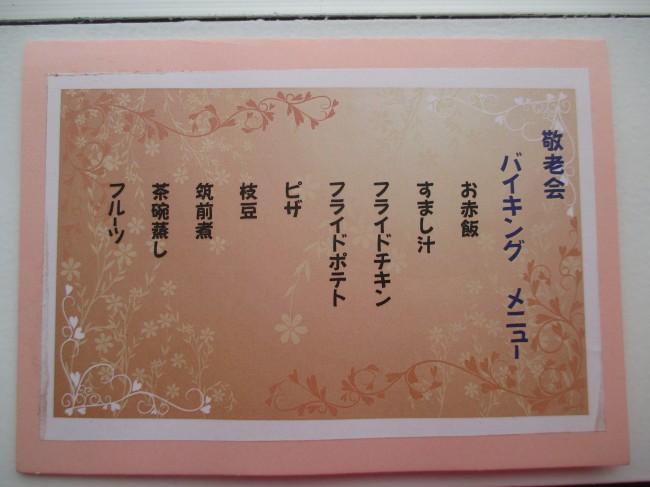 敬老会
バイキング　メニュー
お赤飯
すまし汁
フライドチキン
フライドポテト
ピザ
枝豆
筑前煮
茶碗蒸し
フルーツ